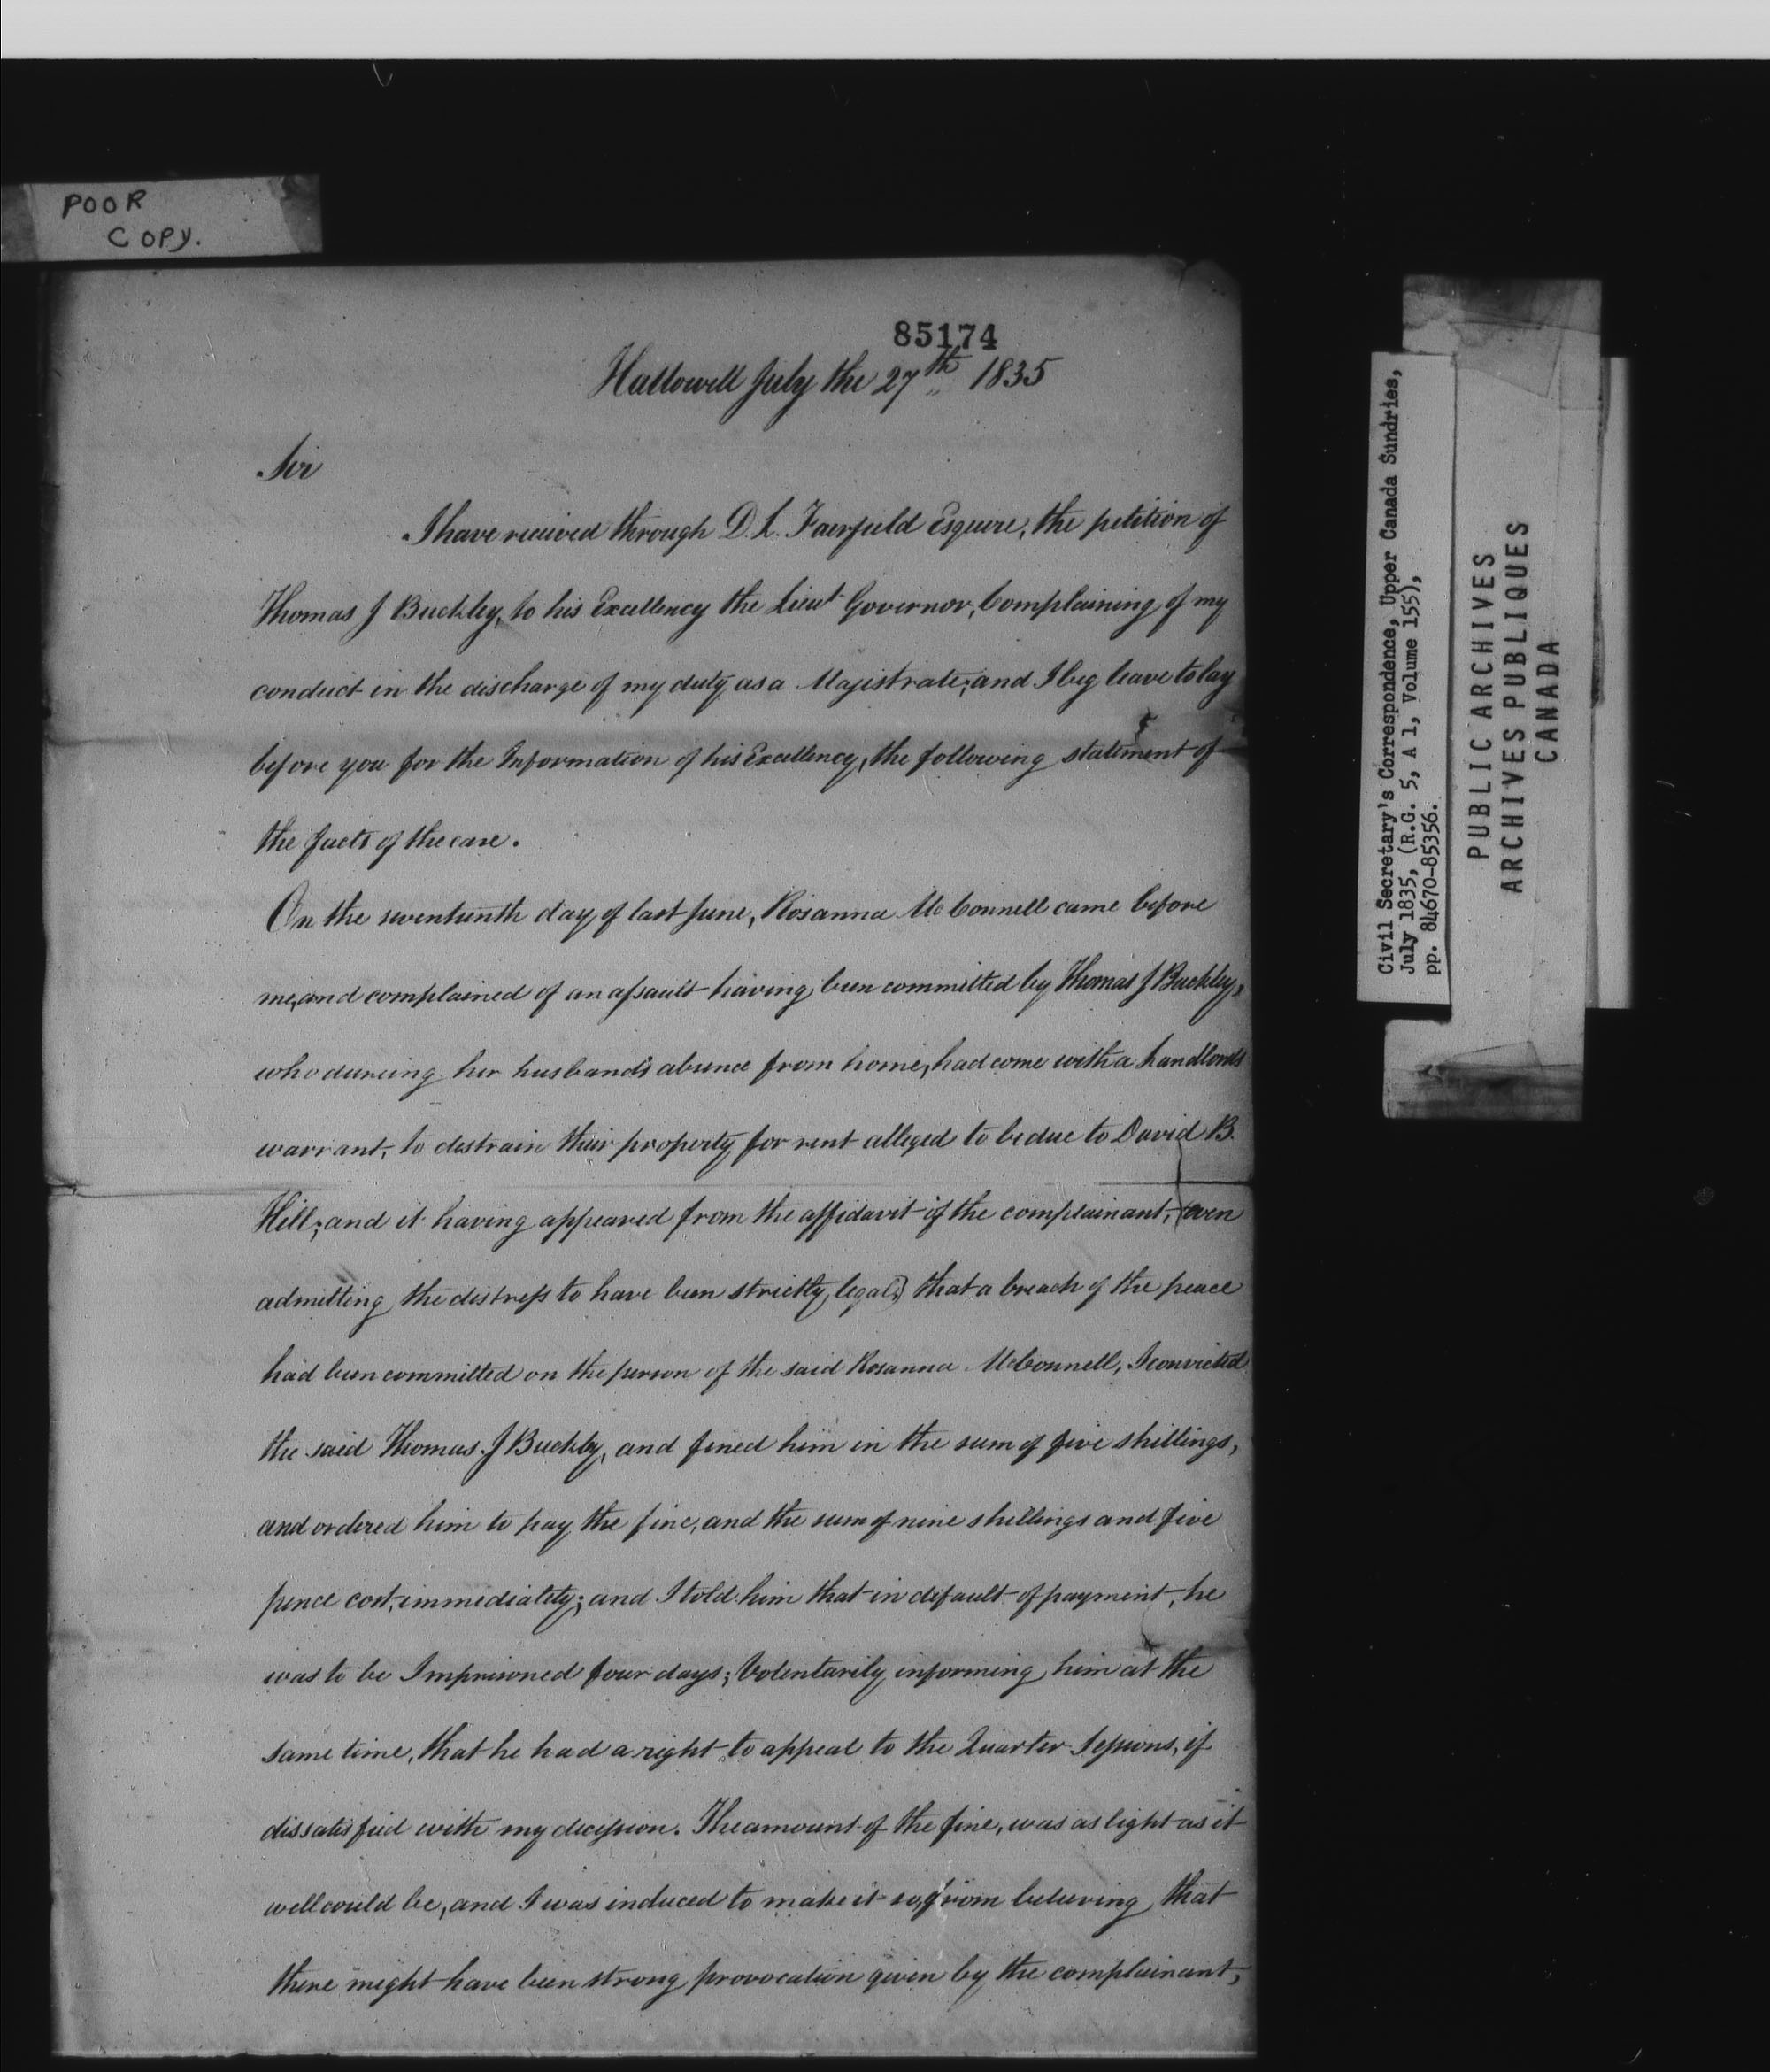 POOR
COPY.
85174
Hallowell July the 27th 1835
Sir
I have received through D. L. Fairfield Esquire, the petition of
Thomas J Buckley, to his Excellency the Lieut Governor, Complaining of my
conduct in the discharge of my duty as a Majistrate; and I beg leave to lay
before you for the Information of his Excellency, the following statement of
the facts of the case.
On the seventeenth day of last June, Rosanna McConnell came before
me, and complained of an assault having been committed by Thomas J Buckley,
who dureing her husband's absence from home, had come with a handlords
warrant, to distrain their property for rent alleged to be due to David B.
Hill; and it having appeared from the affidavit of the complainant, (even
admitting the distress to have been strictly legal,) that a breach of the peace
had been committed on the person of the said Rosanna McConnell, I convicted
the said Thomas J Buckley, and fined him in the sum of five shillings,
and ordered him to pay the fine, and the sum of nine shillings and five
pence cost, immediately; and I told him that in default of payment, he
was to be Imprisoned four days; Volentarily informing him at the
same time, that he had a right to appeal to the Quarter Sessions, if
dissatisfied with my decission. The amount of the fine, was as light as it
well could be, and I was induced to make it so, from believing that
there might have been strong provocation given by the complainant,
Civil Secretary's Correspondence, Upper Canada Sundries,
July 1835, (R.G. 5, A 1, Volume 155),
pp. 84670-85356.
PUBLIC ARCHIVES
ARCHIVES PUBLIQUES
CANADA